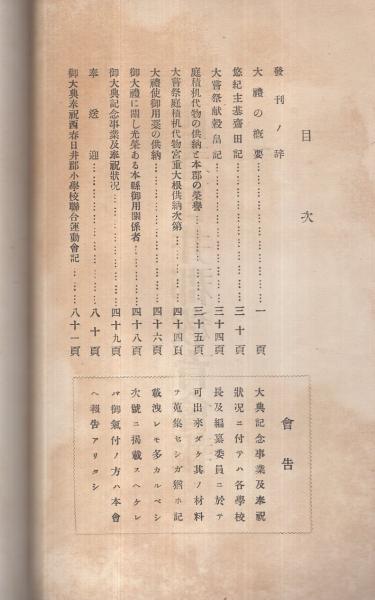 目次
發刊ノ辞
大禮の概要………一頁
悠紀主基齋田記………三十頁
大嘗祭献穀畠記………三十四頁
庭積机代物の供納と本郡の榮譽………三十五頁
大嘗祭庭積机代物宮重大根供納次第………四十四頁
大禮使御用藁の供納………四十六頁
御大禮に關し光榮ある本縣御用關係者………四十八頁
御大典記念事業及奉祝狀况………四十九頁
奉送迎………八十頁
御大典奉祝西春日井郡小學校聯合運動會記………八十一頁
會告
大典記念事業及奉祝
狀况ニ付テハ各學校
長及編纂委員ニ於テ
可出來ダケ其ノ材料
ヲ蒐集セシガ猶ホ記
載洩レモ多カルベシ
次號ニ掲載スヘケレ
バ御氣付ノ方ハ本會
ヘ報告アリタシ